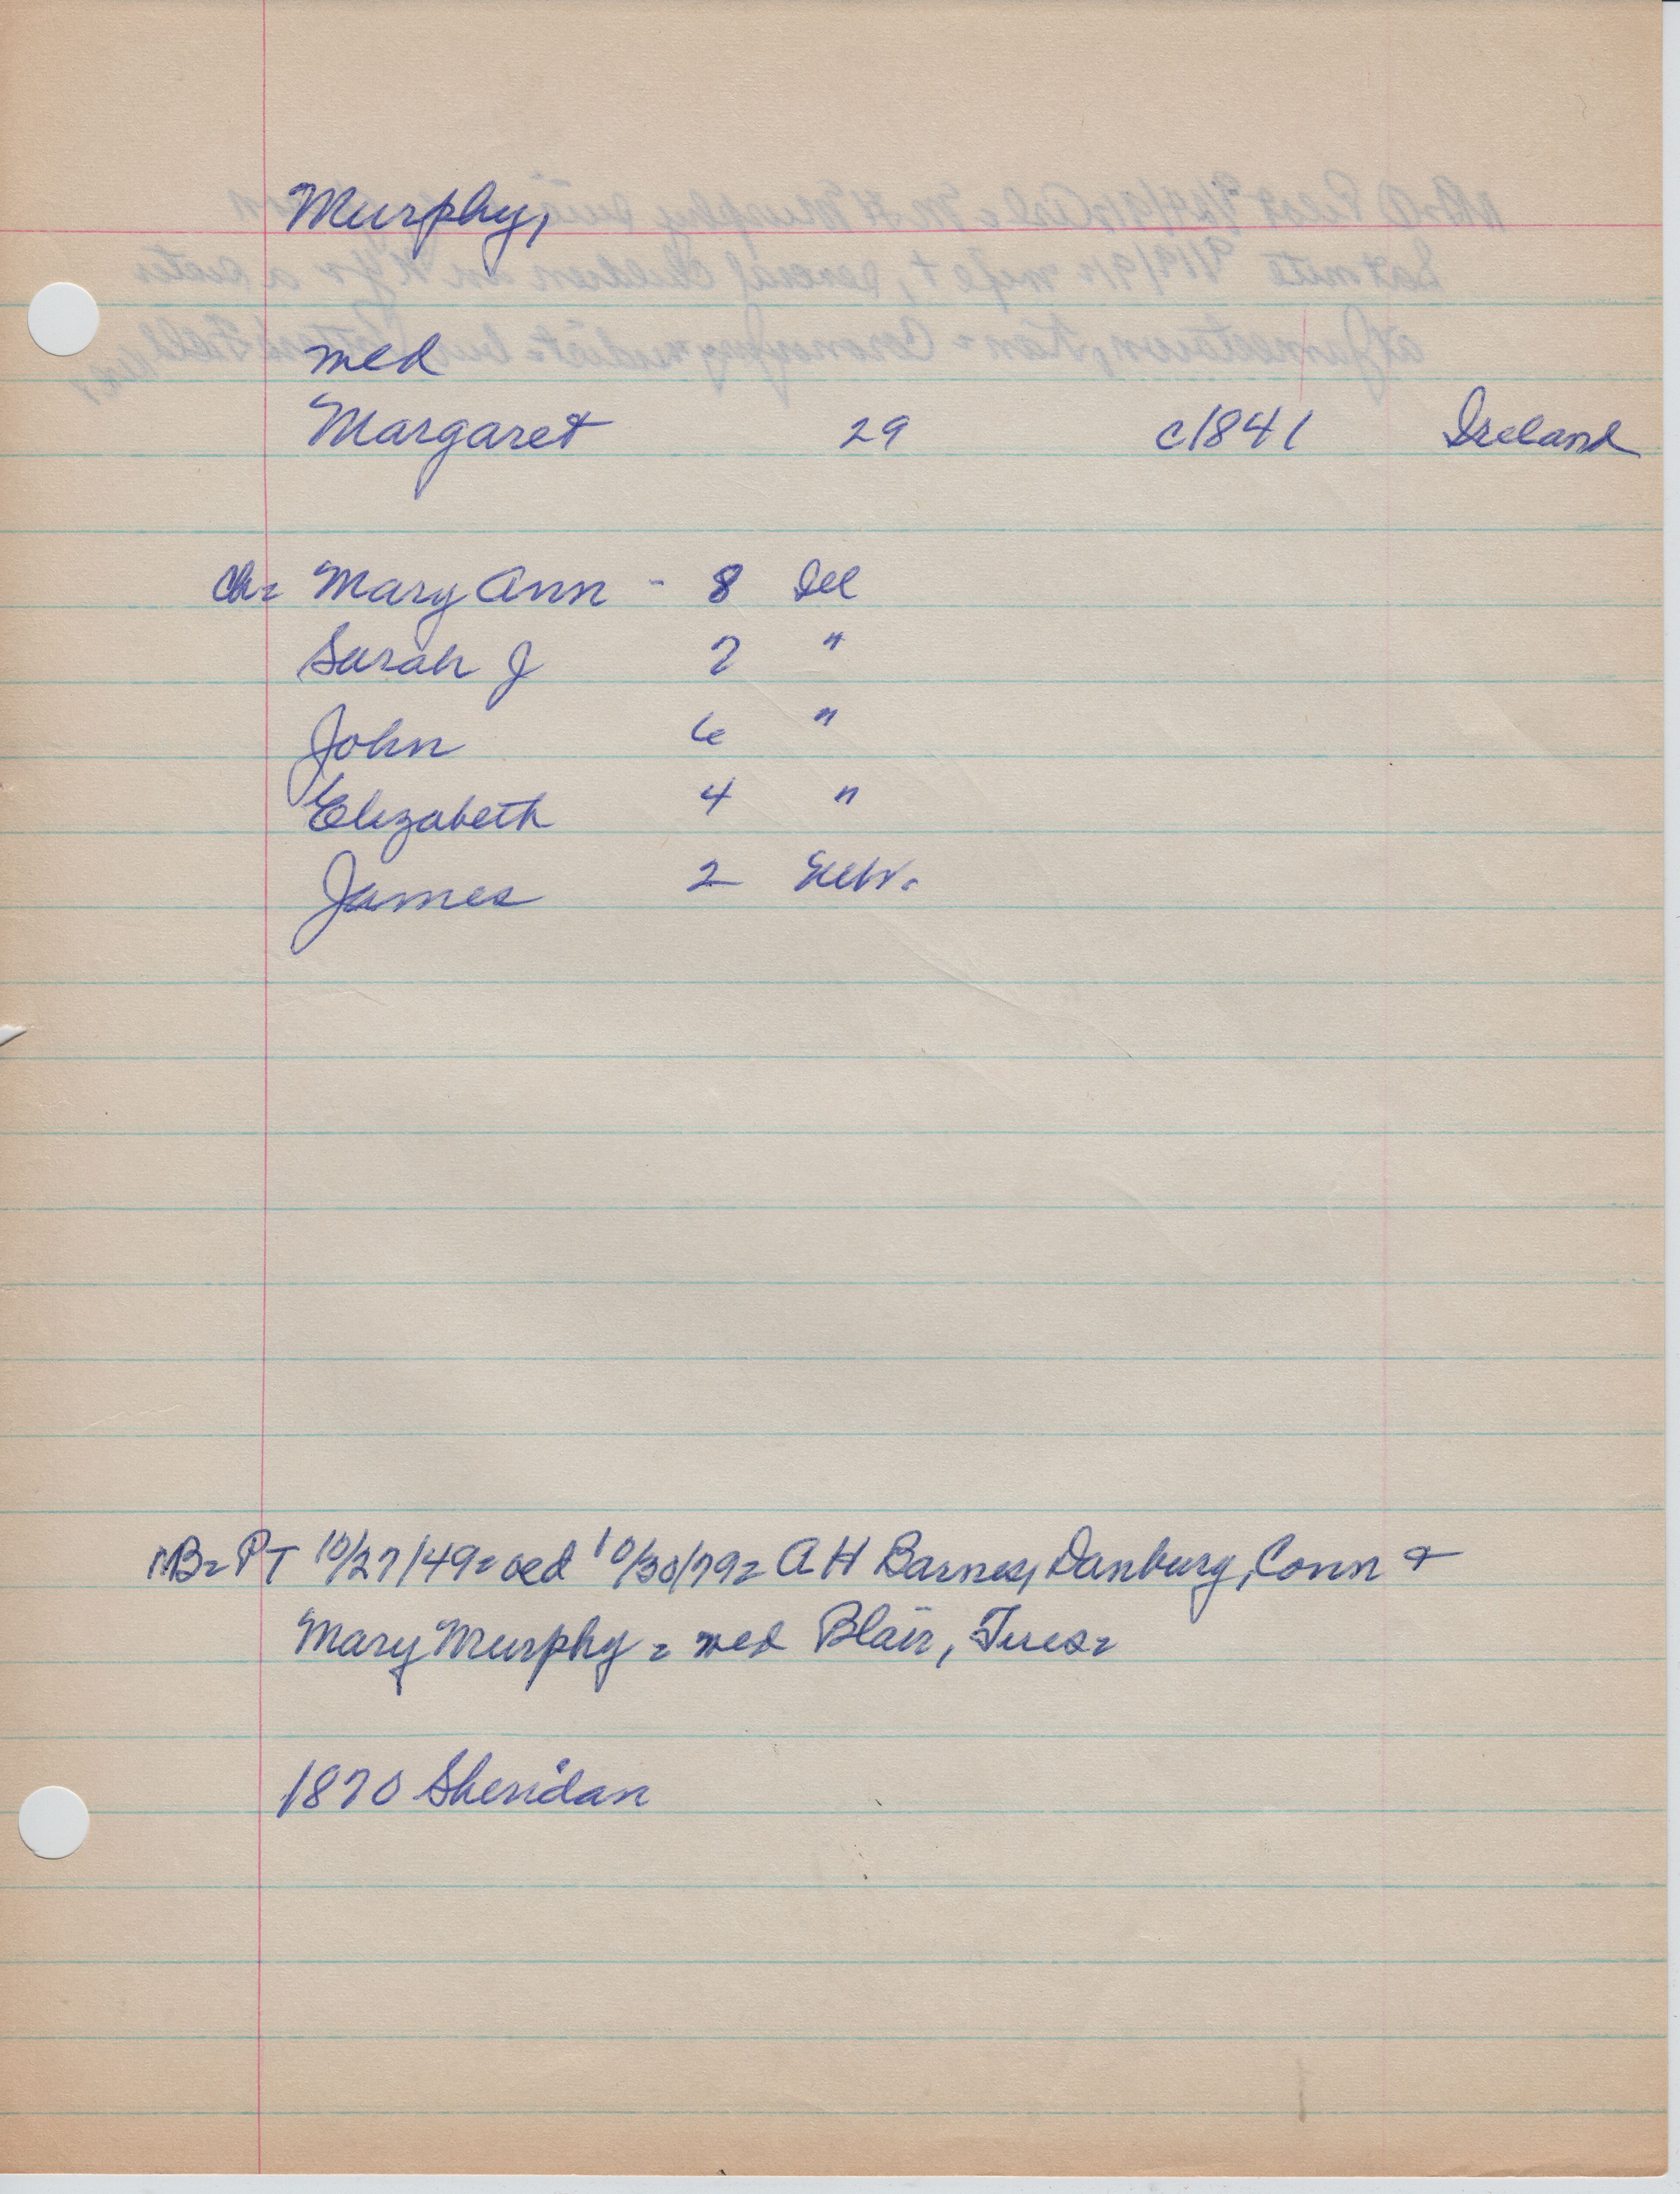 Murphy,
med
Margaret 29 c1841 Ireland
Ch= Mary Ann - 8 Ill
Sarah J 7 "
John 6 "
Elizabeth 4 "
James 2 Neb.
NB= PT 10/27/49= ced 10/30/79= A H Barnes, Danbury, Conn &
Mary Murphy = med Blair, Tues=
1870 Sheridan